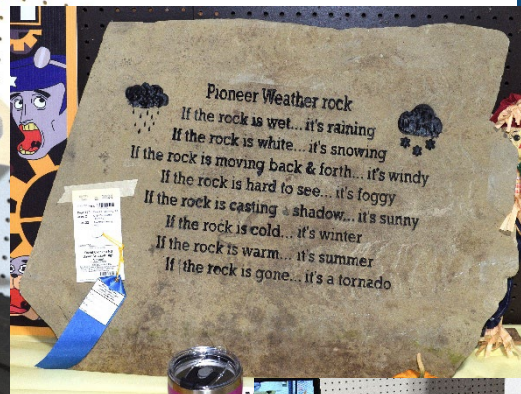 Pioneer Weather rock
If the rock is wet... it's raining
If the rock is white... it's snowing
If the rock is moving back & forth... it's windy
If the rock is hard to see... it's foggy
If the rock is casting a shadow... it's sunny
If the rock is cold... it's winter
If the rock is warm... it's summer
If the rock is gone... it's a tornado